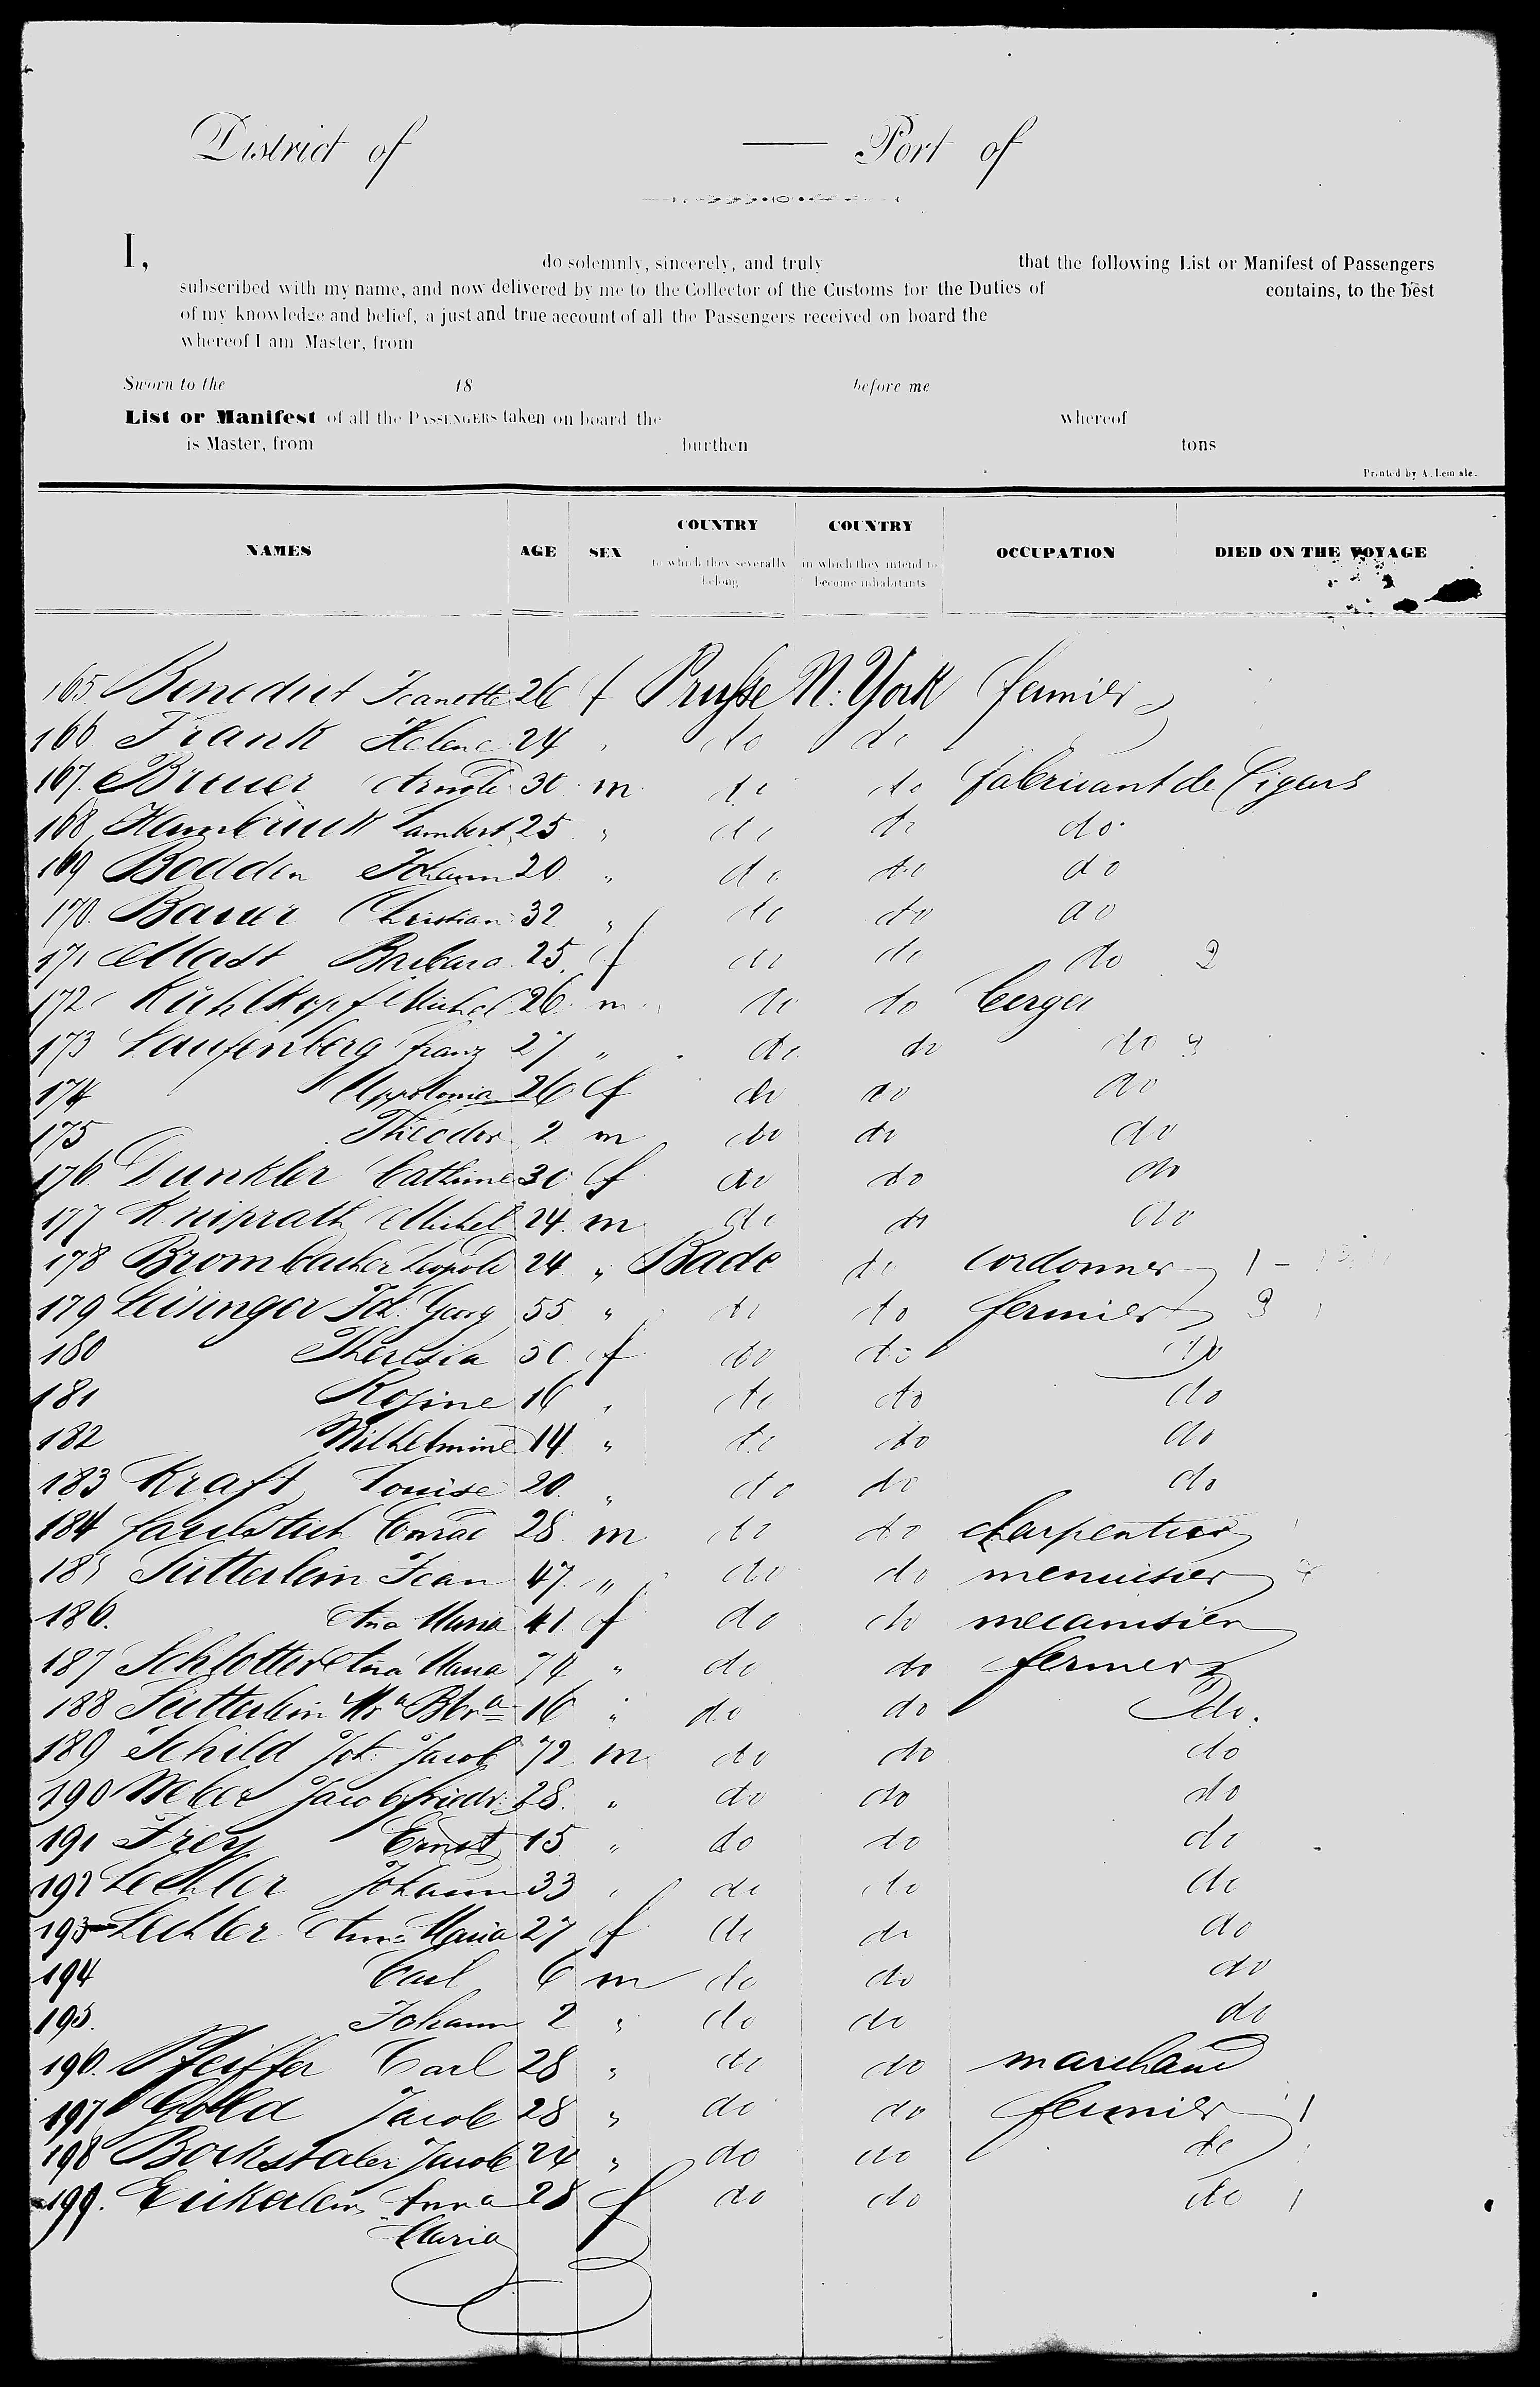 District of — Port of
I, do solemnly, sincerely, and truly that the following List or Manifest of Passengers
subscribed with my name, and now delivered by me to the Collector of the Customs for the Duties of contains, to the best
of my knowledge and belief, a just and true account of all the Passengers received on board the
whereof I am Master, from
Sworn to the 18 before me
List or Manifest of all the PASSENGERS taken on board the whereof
is Master, from burthen tons
Printed by A. Lemale.
NAMES AGE SEX COUNTRY to which they severally belong COUNTRY in which they intend to become inhabitants OCCUPATION DIED ON THE VOYAGE
165 Benedict Jeanette 26 f Prusse N. York fermier
166 Frank Helene 24 " do do
167. Breuer 30 m do do fabricant de Cigars
168 Lambert 25 " do do do
169 Bodden Johann 20 " do do do
170. Bauer Christian 32 " do do do
171 Mast Barbara 25 f do do do 2
172 Kühlkopf Michel 26 m do do berger
173 Laufenberg franz 27 " do do do
174 Appolonia 26 f do do do
175 Theodor 2 m do do do
176. Dunkler Cathrine 30 f do do do
177 Kniprath Michel 24 m do do do
178 Brombacher Leopold 24 " Bade do cordonner 1 -
179 Leisinger Joh. Georg 55 " do do fermier 3
180 Theresia 50 f do do do
181 Rosine 16 " do do do
182 Wilhelmine 14 " do do do
183 Kraft Louise 20 " do do do
184 faulstich Conrad 28 m do do charpentier
185 Sütterlein Jean 47 " do do menuisier
186. Ana Maria 41 f do do
187 Schlotter Ana Maria 74 " do do fermier
188 Sütterlein Ma Bbra 16 " do do do.
189 Schild Joh. Jacob 72 m do do do
190 Weber Jacob friedr. 28 " do do do
191 Frey Ernst 15 " do do do
192 Lechler Johann 33 " do do do
193 Lechler Ana Maria 27 f do do do
194 Carl 6 m do do do
195. Johann 2 " do do do
196. Pfeiffer Carl 28 " do do marchand
197 Gold Jacob 28 " do do fermier 1
198 Bockstaler Jacob 24 " do do do
199. Anna 28 f do do do 1
Maria